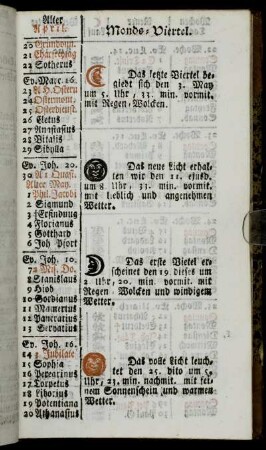 Alter
April.
20 Gründonn.
21 Charfreytag
22 Sotherus
Ev. Marc. 16.
23 A H. Ostern
24 Ostermont.
25 Osterdienst.
26 Cletus
27 Anastasius
28 Vitalis
29 Sibylla
Ev. Joh. 20.
30 A 1 Quas.
Alter May.
1 Phil. Jacobi
2 Sigmund
3 Erfindung
4 Florianus
5 Gotthard
6 Joh Pfort
Ev. Joh. 10.
7 a Mis. Do.
8 Stanislaus
9 Hiob
10 Gordianus
11 Mamertus
12 Pancratius
13 Servatius
Ev. Joh. 16.
14 3 Jubilate
15 Sophia
16 Peregrinus
17 Torpetus
18 Liborius
19 Potentiana
20 Athanasius
Monds-Viertel.
Das letzte Viertel be
giebt sich den 3. May
um 5. Uhr, 33. min. vormit.
mit Regen-Wolcken.
Das neue Licht erhal
ten wir den 11. ejusd.
um 8 Uhr, 33. min. vormit.
mit lieblich und angenehmen
Wetter.
Das erste Viertel er
scheinet den 19 dieses um
2 Uhr, 20. min. vormit. mit
Regen-Wolcken und windigem
Wetter.
Das volle Licht leuch
tet den 25. dito um 5.
Uhr, 23. min. nachmit. mit fei
nem Sonnenschein und warmen
Wetter.